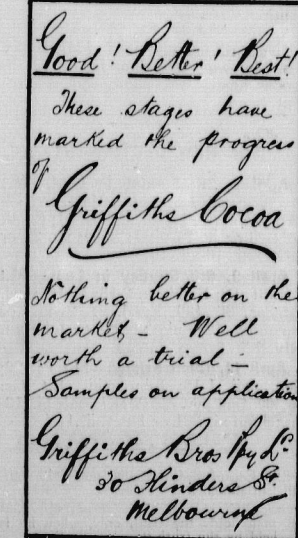 Good! Better! Best!
These stages have
marked the progress
of
Griffiths Cocoa
Nothing better on the
market - Well
worth a trial -
Samples on application
Griffiths Bros Pty Ld
30 Flinders St.
Melbourne